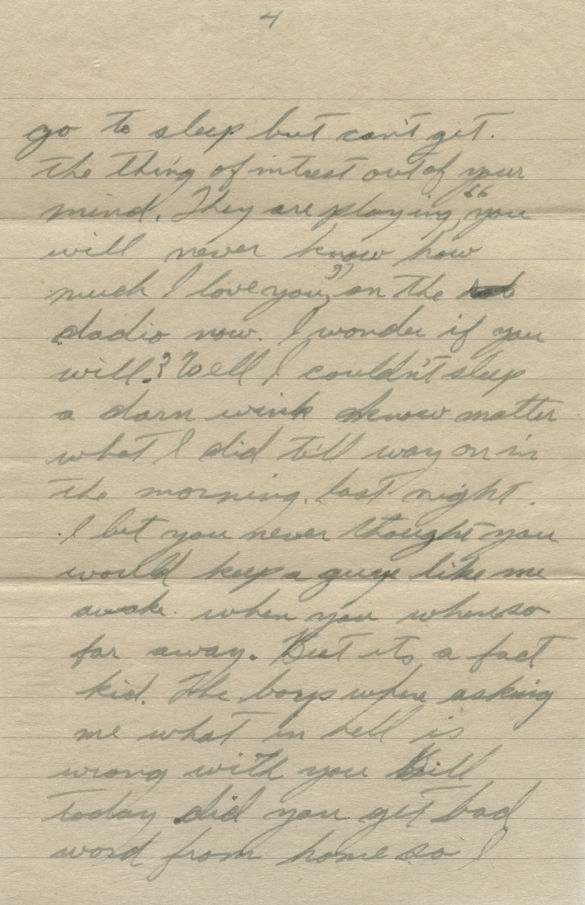 4
go to sleep but can't get.
the thing of intrest out of your
mind. They are playing "you
will never know how
much I love you" on the
dadio now. I wonder if you
will? Well I couldn't sleep
a darn wink know matter
what I did till way on in
the morning. last night.
I bet you never thought you
would keep a guy like me
awake. when you where so
far away. But its a fact
kid. The boys where asking
me what in hell is
wrong with you Bill
today did you get bad
word from home so I